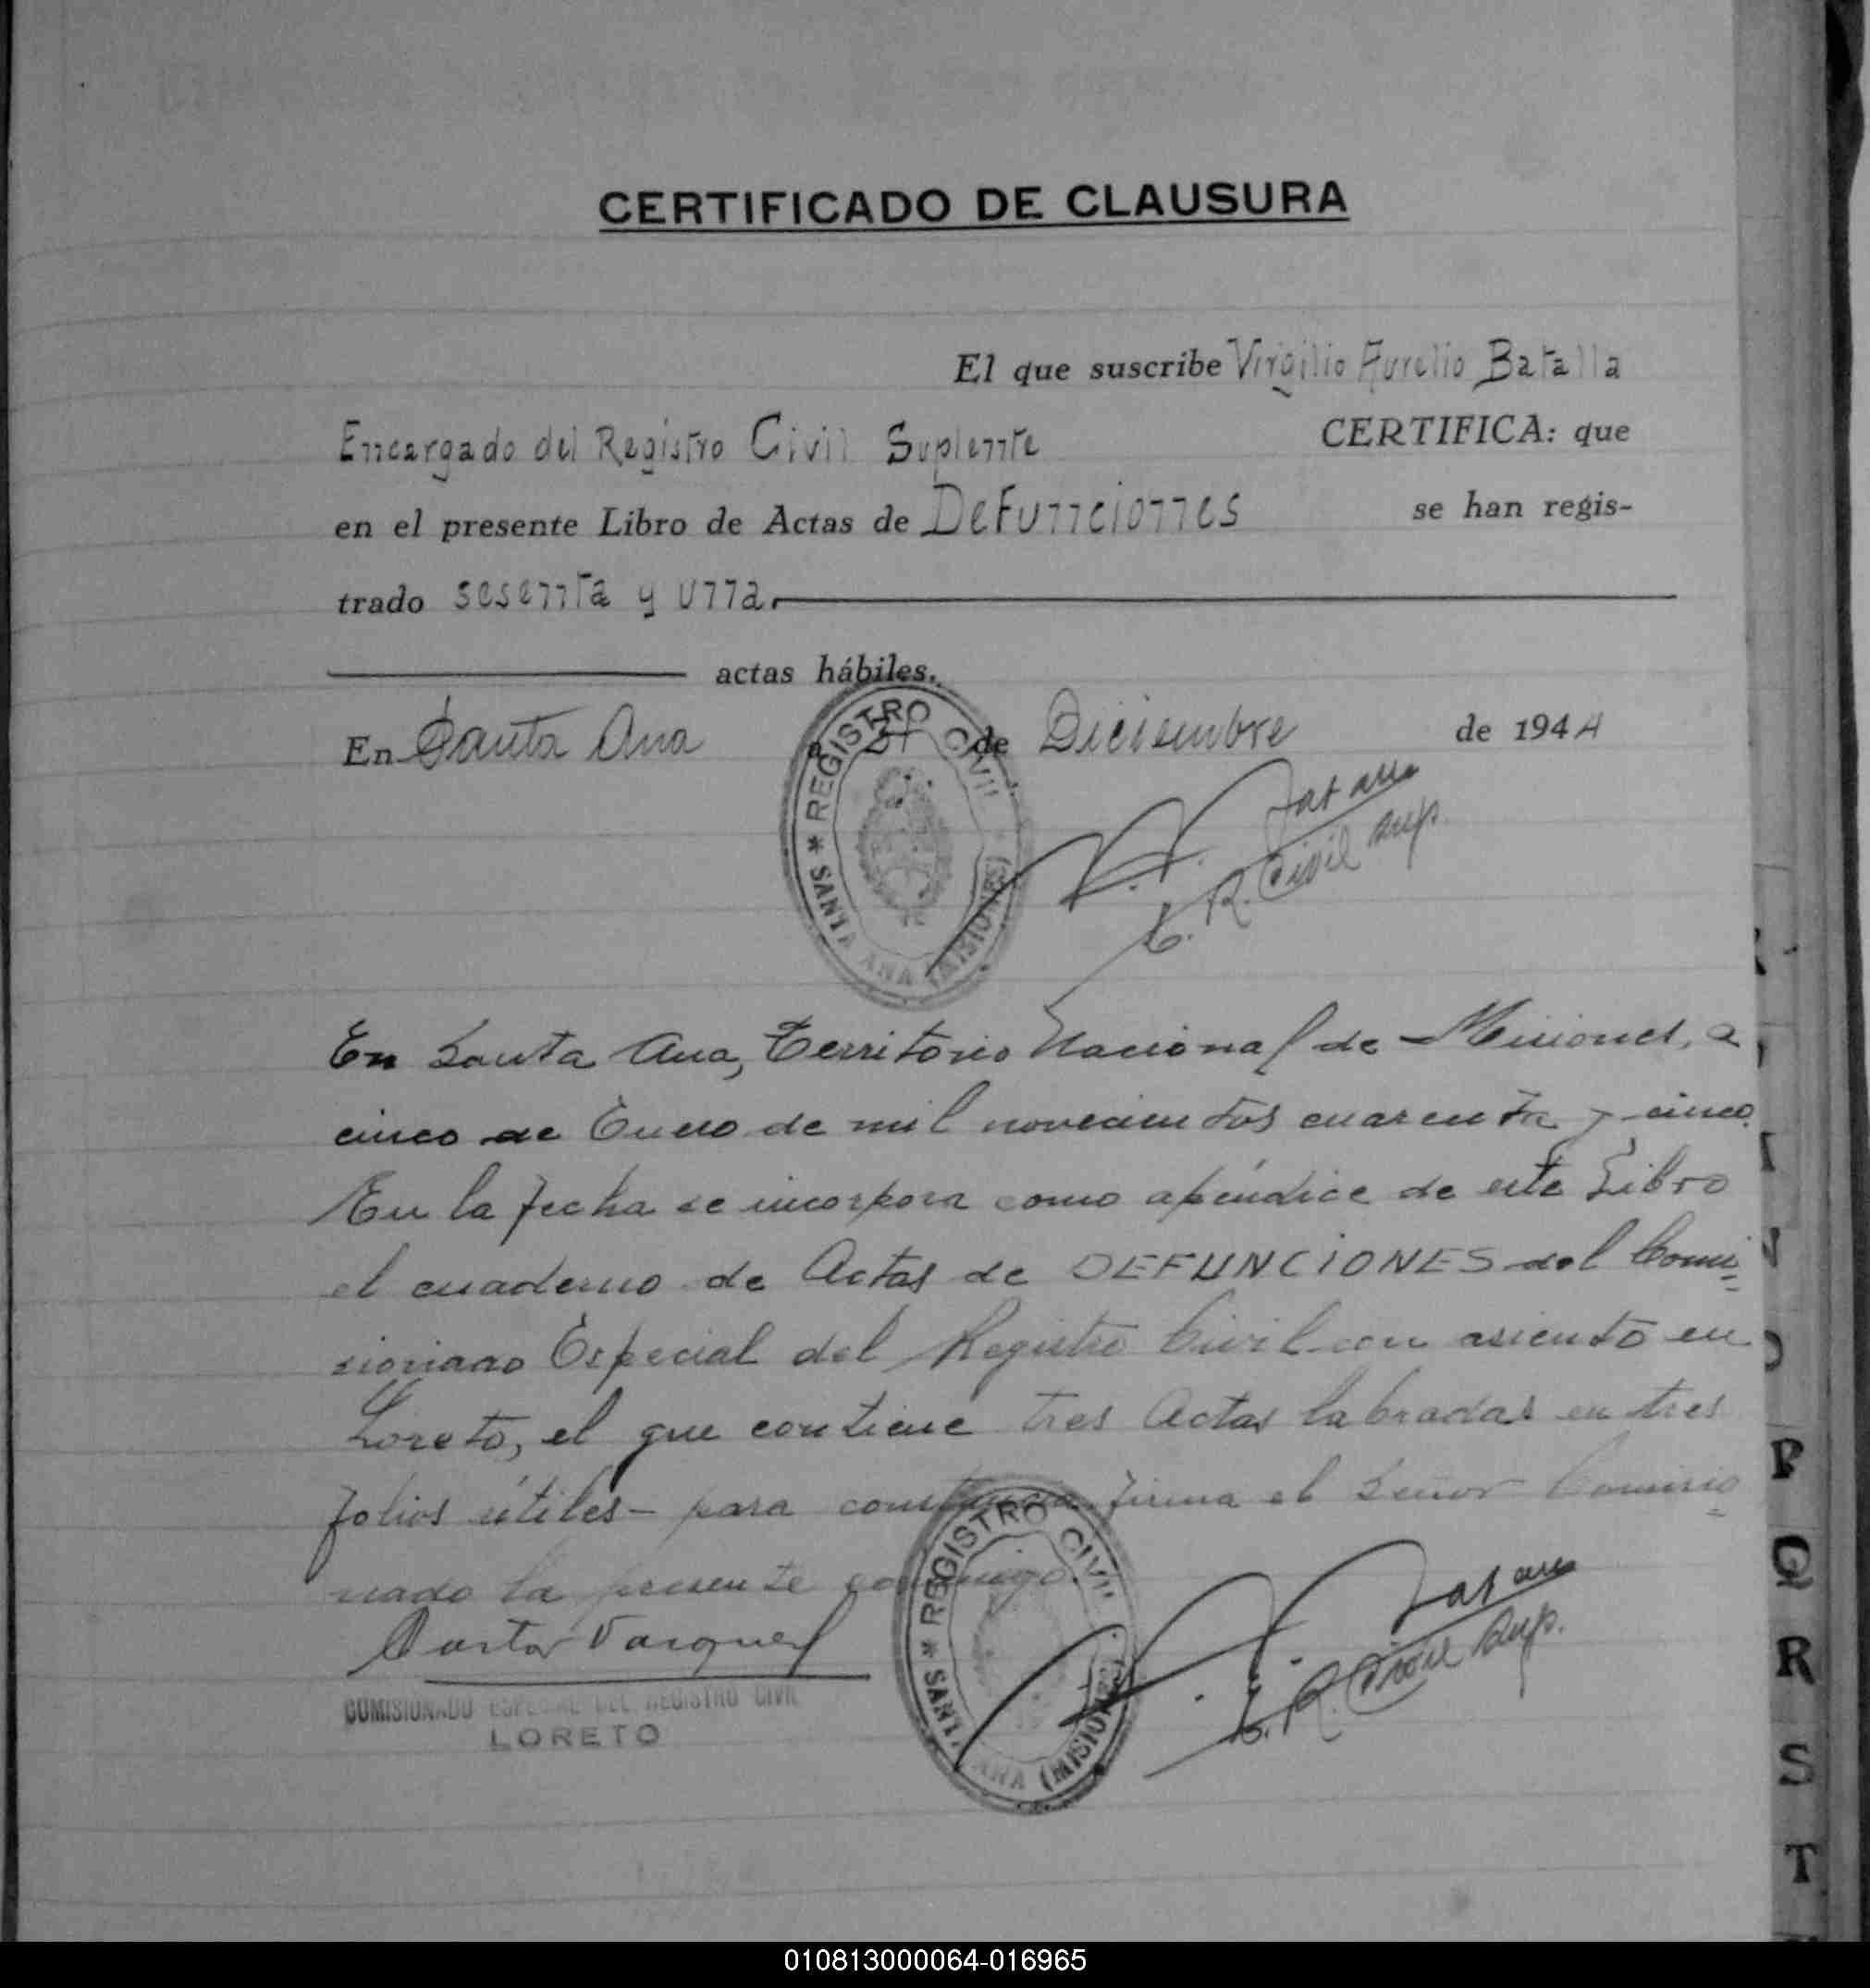 CERTIFICADO DE CLAUSURA
El que suscribe Virgilio Aurelio Batalla
Encargado del Registro Civil Suplente CERTIFICA: que
en el presente Libro de Actas de Defunciones se han regis-
trado sesenta y una.
actas hábiles.
En Santa Ana a 31 de Diciembre de 1944
REGISTRO CIVIL
* SANTA ANA (MISIONES)
E. R. Civil Sup.
En Santa Ana, Territorio Nacional de Misiones, a
cinco de Enero de mil novecientos cuarenta y cinco.
En la fecha se incorpora como apéndice de este Libro
el cuaderno de Actas de DEFUNCIONES del Comi=
sionado Especial del Registro Civil con asiento en
Loreto, el que contiene tres Actas labradas en tres
folios útiles- para constancia firma el Señor Comisio=
nado la presente conmigo.
Vasquez
COMISIONADO ESPECIAL DEL REGISTRO CIVIL
LORETO
REGISTRO CIVIL
* SANTA ANA (MISIONES)
E. R. Civil Sup.
P
Q
R
S
T
010813000064-016965